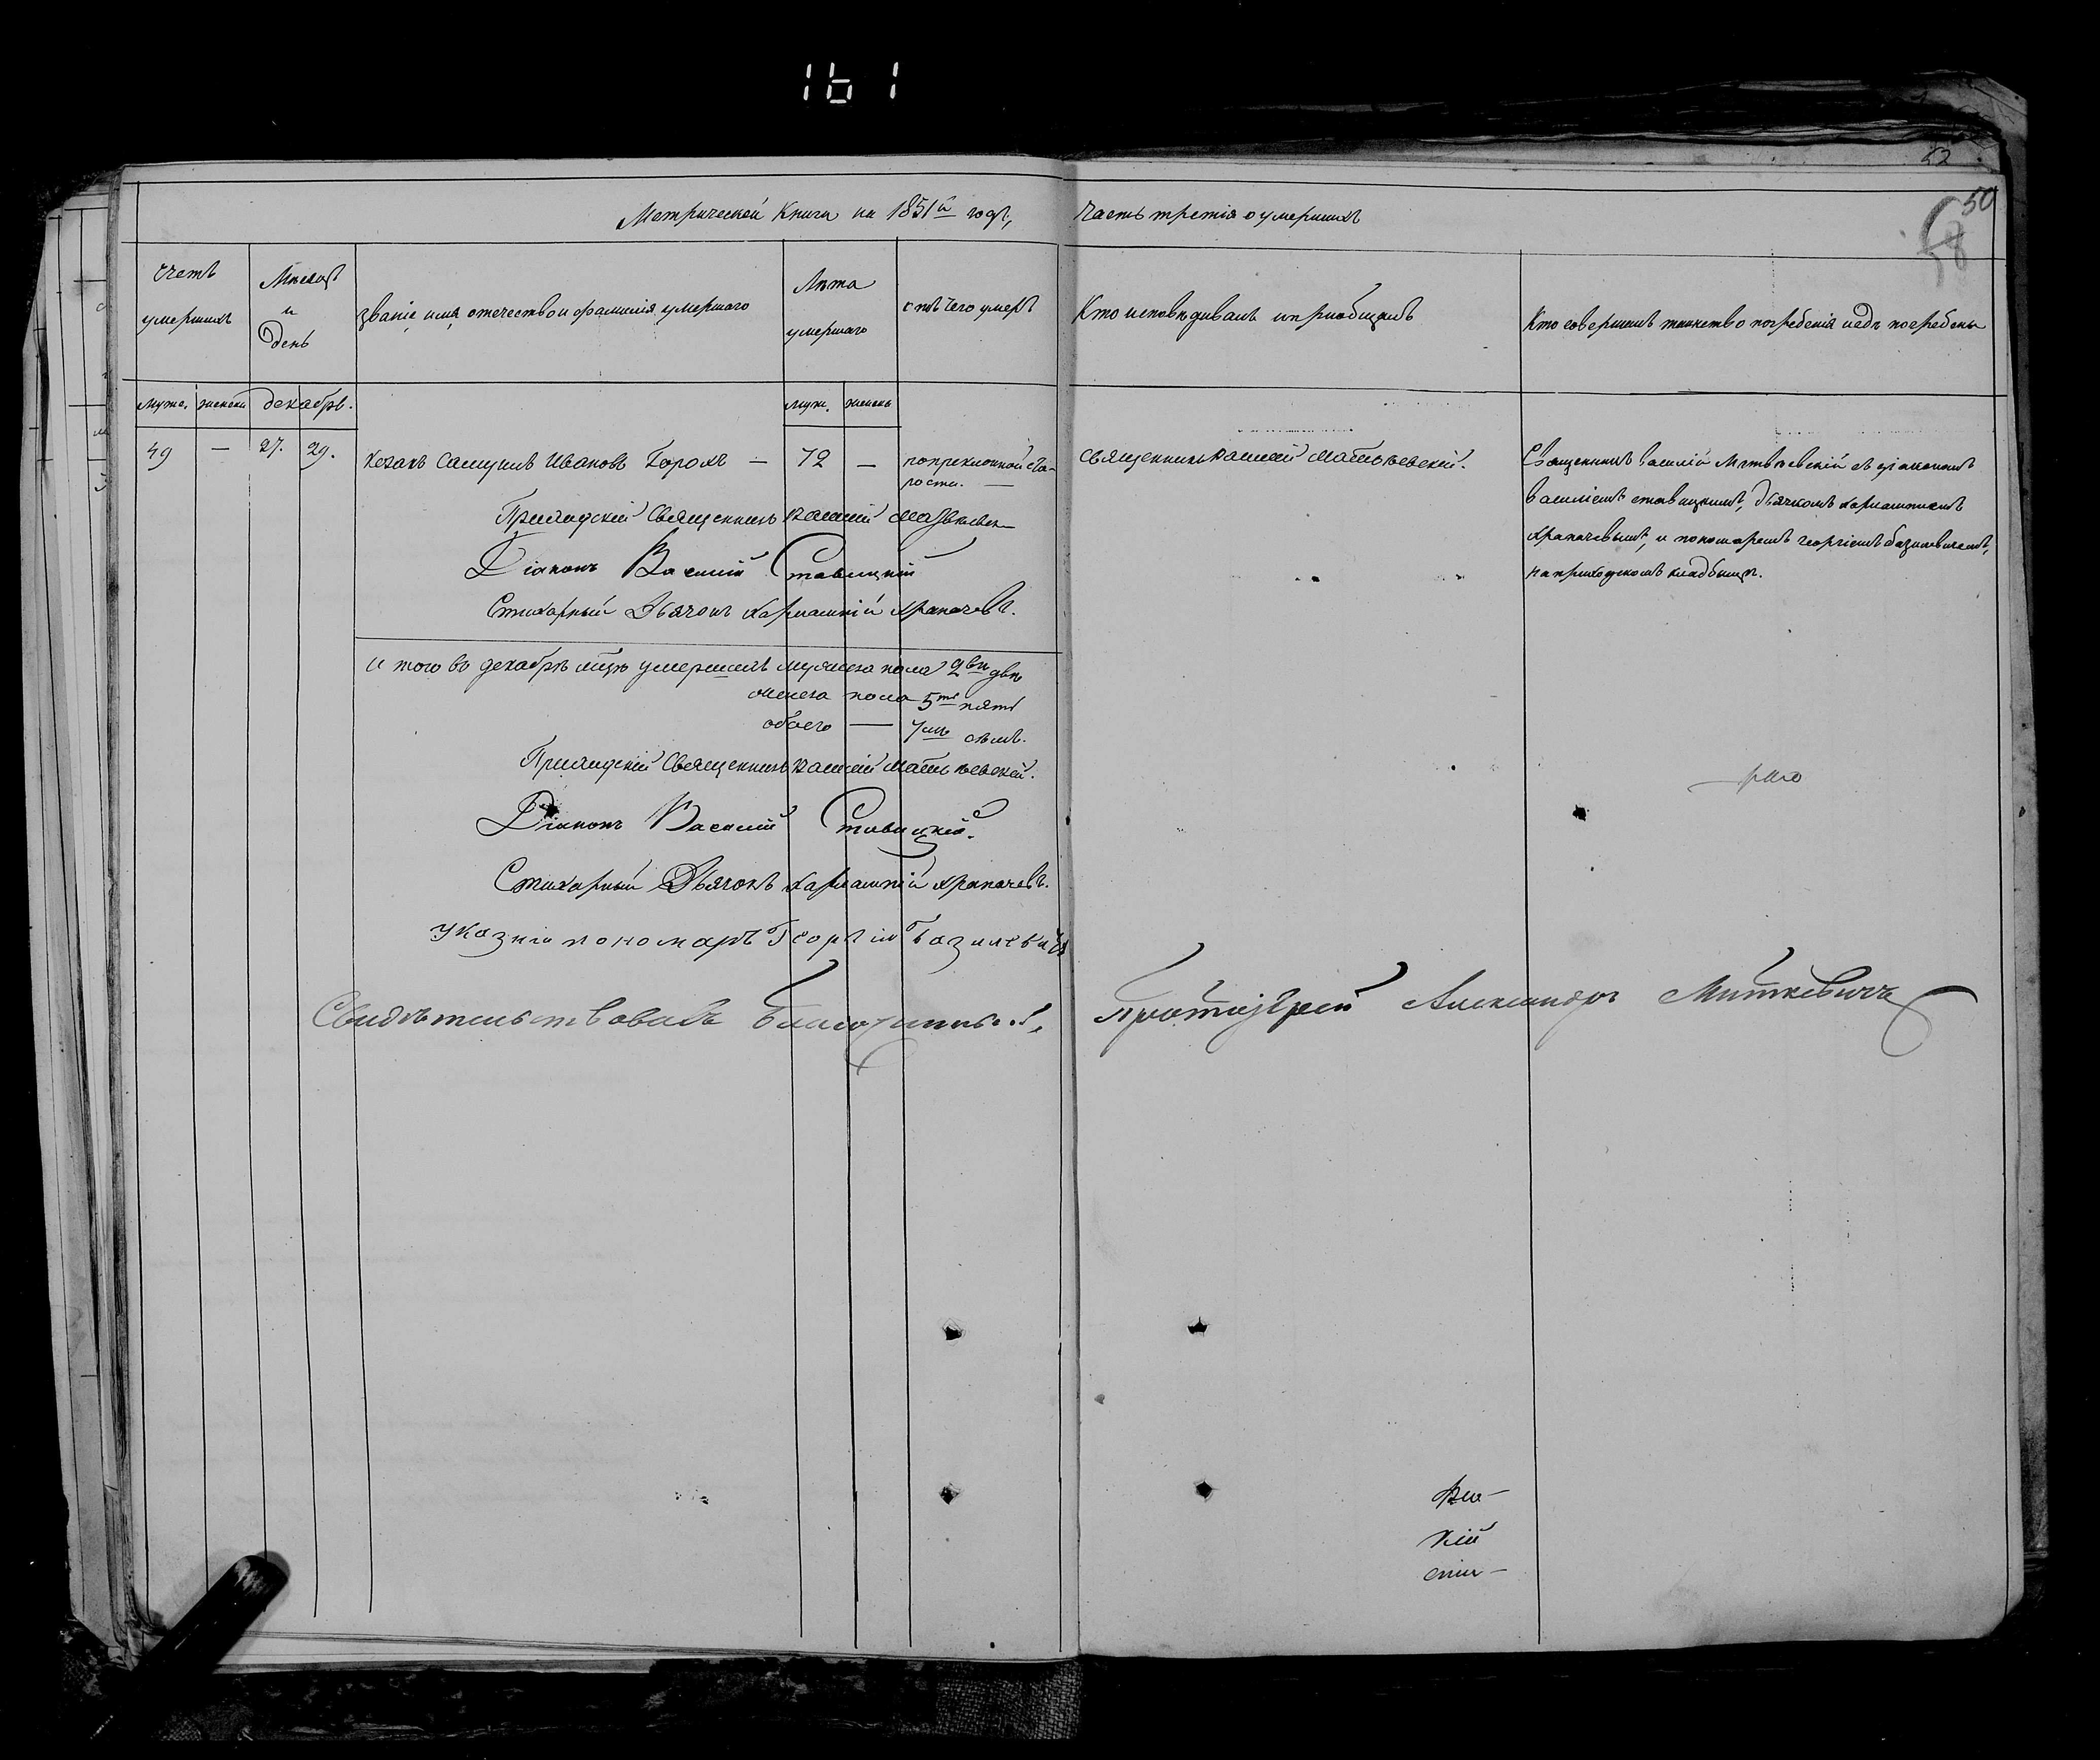 161
52
50
58
Метрической Книги на 1851й годъ, Часть третія о умершихъ
Счетъ умершихъ
Мѣсяцъ и День
званіе имя отечество и фамилія умершаго
Лѣта умершаго
отъ чего умеръ
Кто исповѣдывалъ и приобщалъ
Кто совершилъ таинство погребенія и гдѣ погребены
муже. женски декабрь. муж. женскъ
49 — 27. 29. Козакъ Самуилъ Ивановъ — 72 — священникъ Василій Матвѣевскій.
старости. —
Священникъ Василій Матвѣевскій съ діакономъ
Василіемъ Ставицкимъ, дьячкомъ Харлампіемъ
Храпачевымъ, и пономаремъ Георгіемъ Базилевичемъ,
на приходскомъ кладбищѣ.
Приходскій Священникъ Василій Матвѣевск
Діаконъ Василій Ставицкій
Стихарный Дьячокъ Харлампій Храпачевъ.
И того въ декабрѣ мцѣ умершихъ мужеска пола 2вѣ двѣ
женска пола 5ть пять
обоего — 7мь семь.
Приходскій Священникъ Василій Матвѣевскій.
Діаконъ Василій Ставицкій.
Стихарный Дьячокъ Харлампій Храпачевъ.
Указній пономарь Георгій Базилевичъ
Свидѣтельствовалъ Благочинный, Протоіерей Александръ Миткевичъ
кій